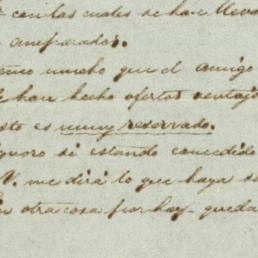 con las cuales se han lleva
amparados.
mucho que el amigo
han hecho ofertas ventajo
esto es muy reservado.
gnoro si estando concedido
V. me dirá lo que haya so
otra cosa por hoy - queda